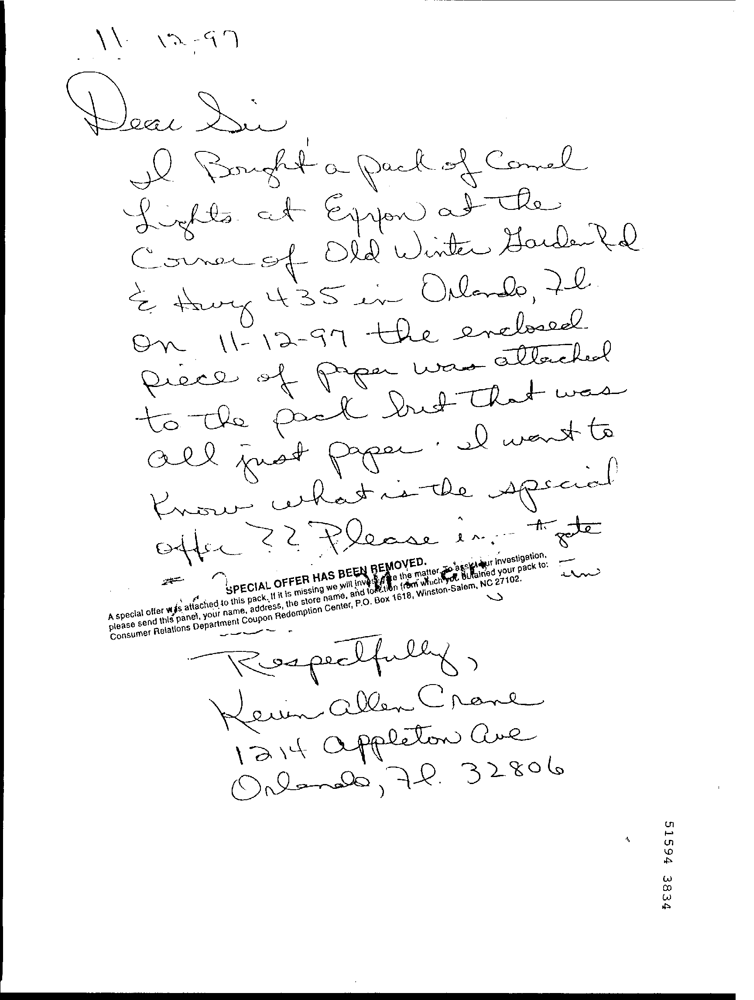 11-12-97
Dear Sir
I Bought a pack of Camel
Lights at Exxon at the
Corner of Old Winter Garden Rd
& Hwy 435 in Orlando, Fl.
on 11-12-97 the enclosed
piece of paper was attached
to the pack but that was
all just paper. I want to
Know what is the special
offer ?? Please
SPECIAL OFFER HAS BEEN REMOVED.
A special offer was attached to this pack. If it is missing we will investigate the matter. To assist our investigation,
please send this panel, your name, address, the store name, and location from which you obtained your pack to:
Consumer Relations Department Coupon Redemption Center, P.O. Box 1618, Winston-Salem, NC 27102.
Respectfully,
Kevin Allen Crane
1214 Appleton Ave
Orlando, Fl. 32806
51594 3834